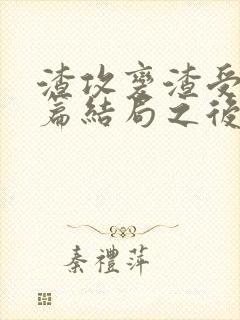 渣攻变渣受
篇結局之後
秦禮萍